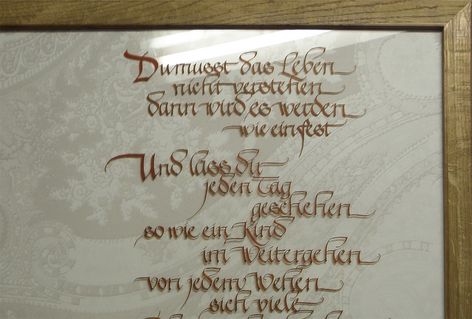 Du musst das Leben
nicht verstehen
dann wird es werden
wie ein fest
Und lass du
jeden Tag
geschehen
so wie ein Kind
im Weitergehen
von jedem Wehen
sich viele